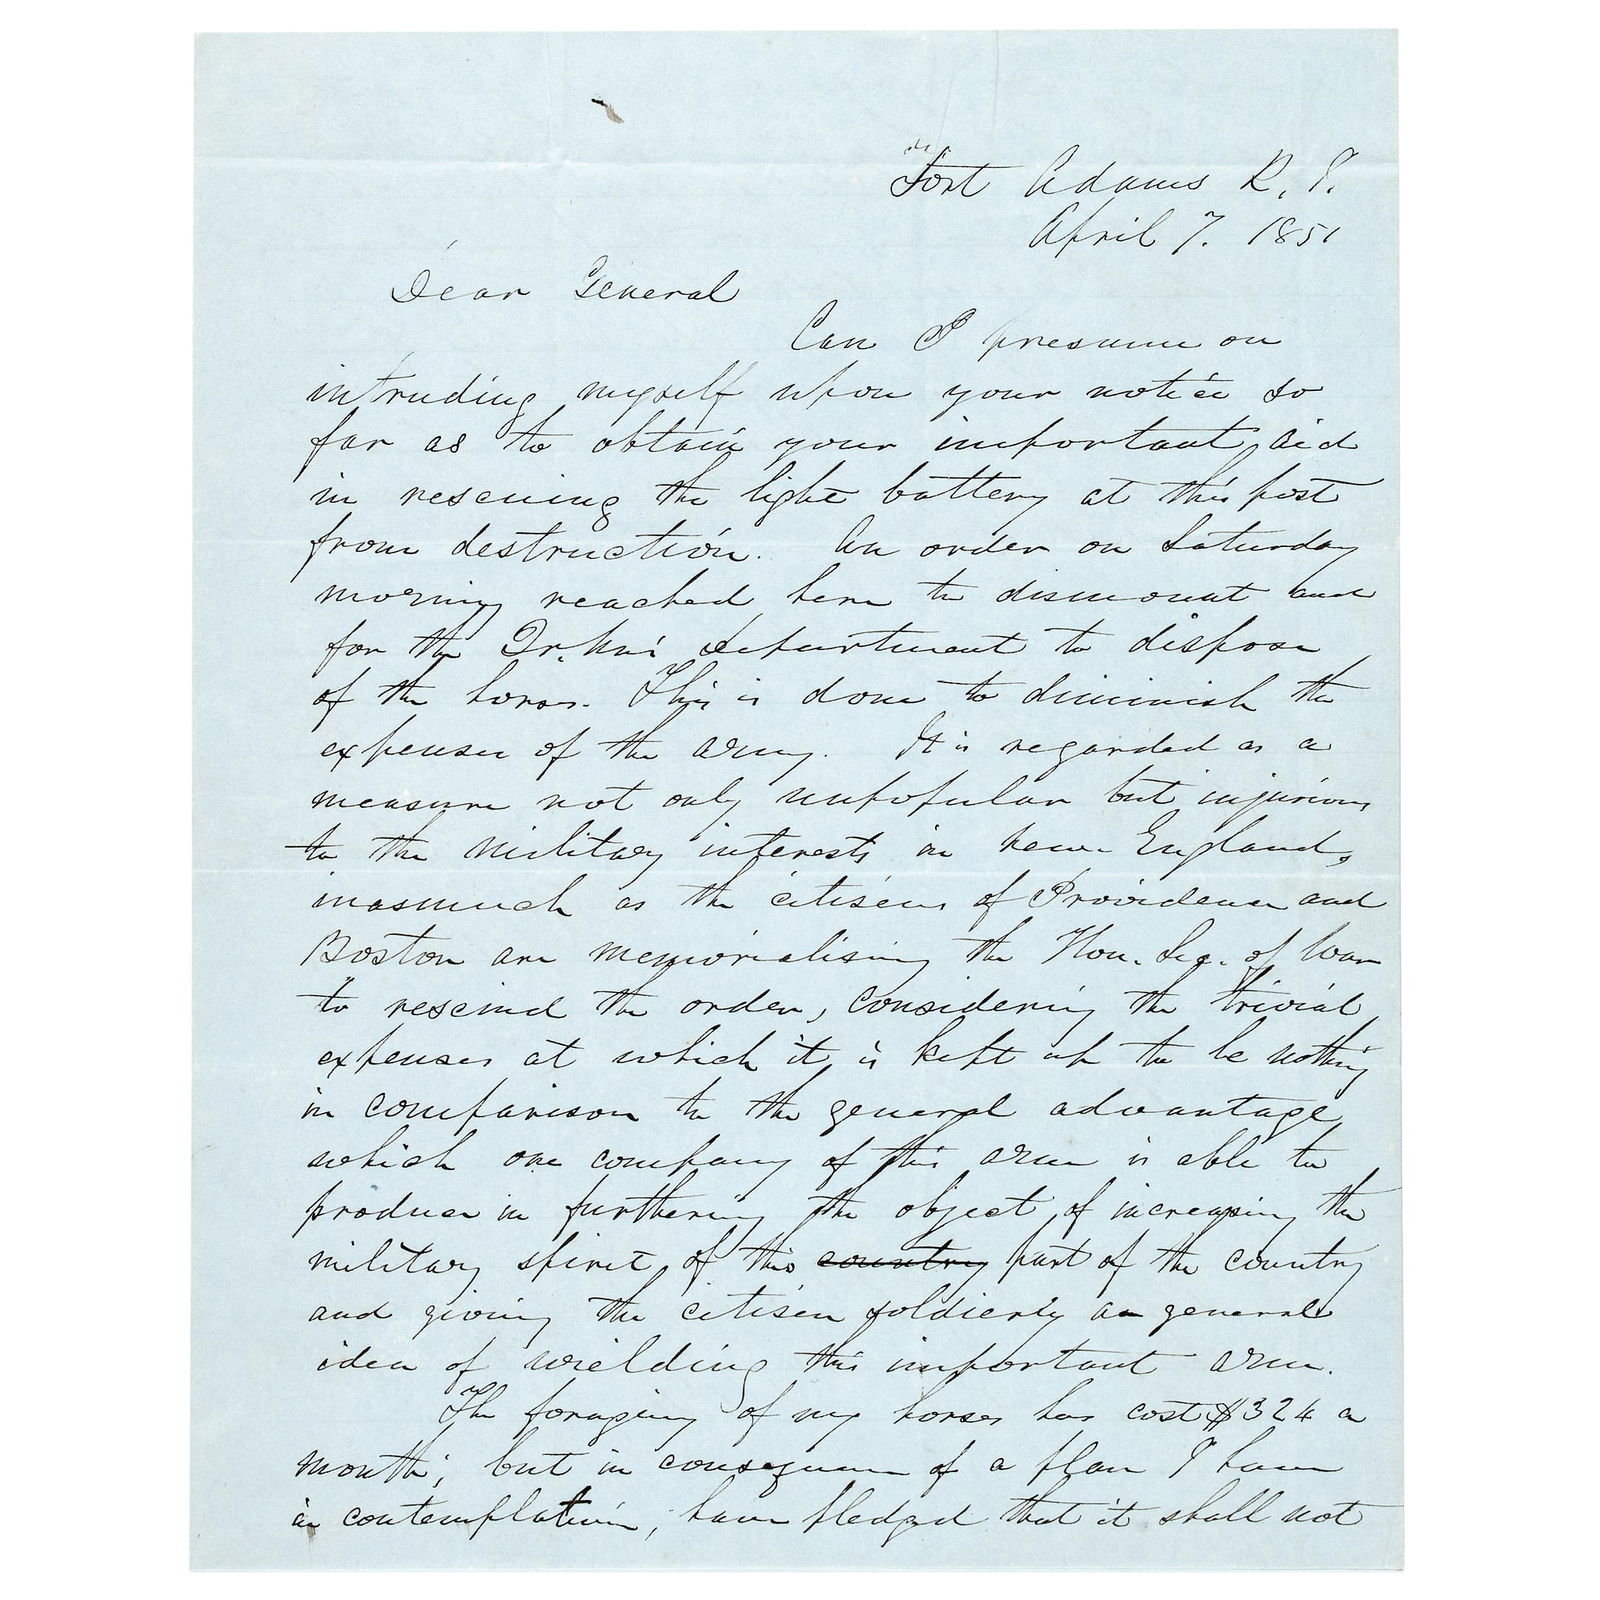 Fort Adams R. I.
April 7. 1851
Dear General
Can I presume on
intruding myself upon your notice so
far as to obtain your important aid
in rescuing the light battery at this post
from destruction. An order on Saturday
morning reached here to dismount and
for the Qr. Mrs department to dispose
of the horses. This is done to diminish the
expenses of the army. It is regarded as a
measure not only unpopular but injurious
to the military interests in New England,
inasmuch as the citisens of Providence and
Boston are memorialising the Hon. Sec. of War
to rescind the order, considering the trivial
expenses at which it is kept up to be nothing
in comparison to the general advantage
which one company of this arm is able to
produce in furthering the object of increasing the
military spirit of this country part of the country
and giving the citisen soldiery a general
idea of wielding this important arm.
The foraging of my horses has cost $324 a
month; but in consequence of a plan I have
in contemplation, have pledged that it shall not